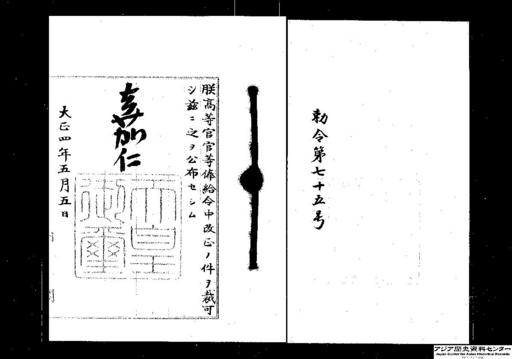 勅令第七十五号
朕高等官官等俸給令中改正ノ件ヲ裁可
シ茲ニ之ヲ公布セシム
嘉仁
天皇御璽
大正四年五月五日
アジア歴史資料センター
Japan Center for Asian Historical Records